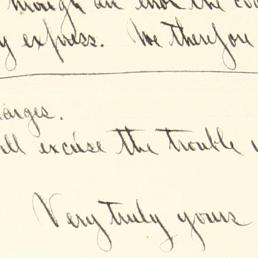 through an error the
by express. We therefore
charges.
will excuse the trouble
Very truly yours